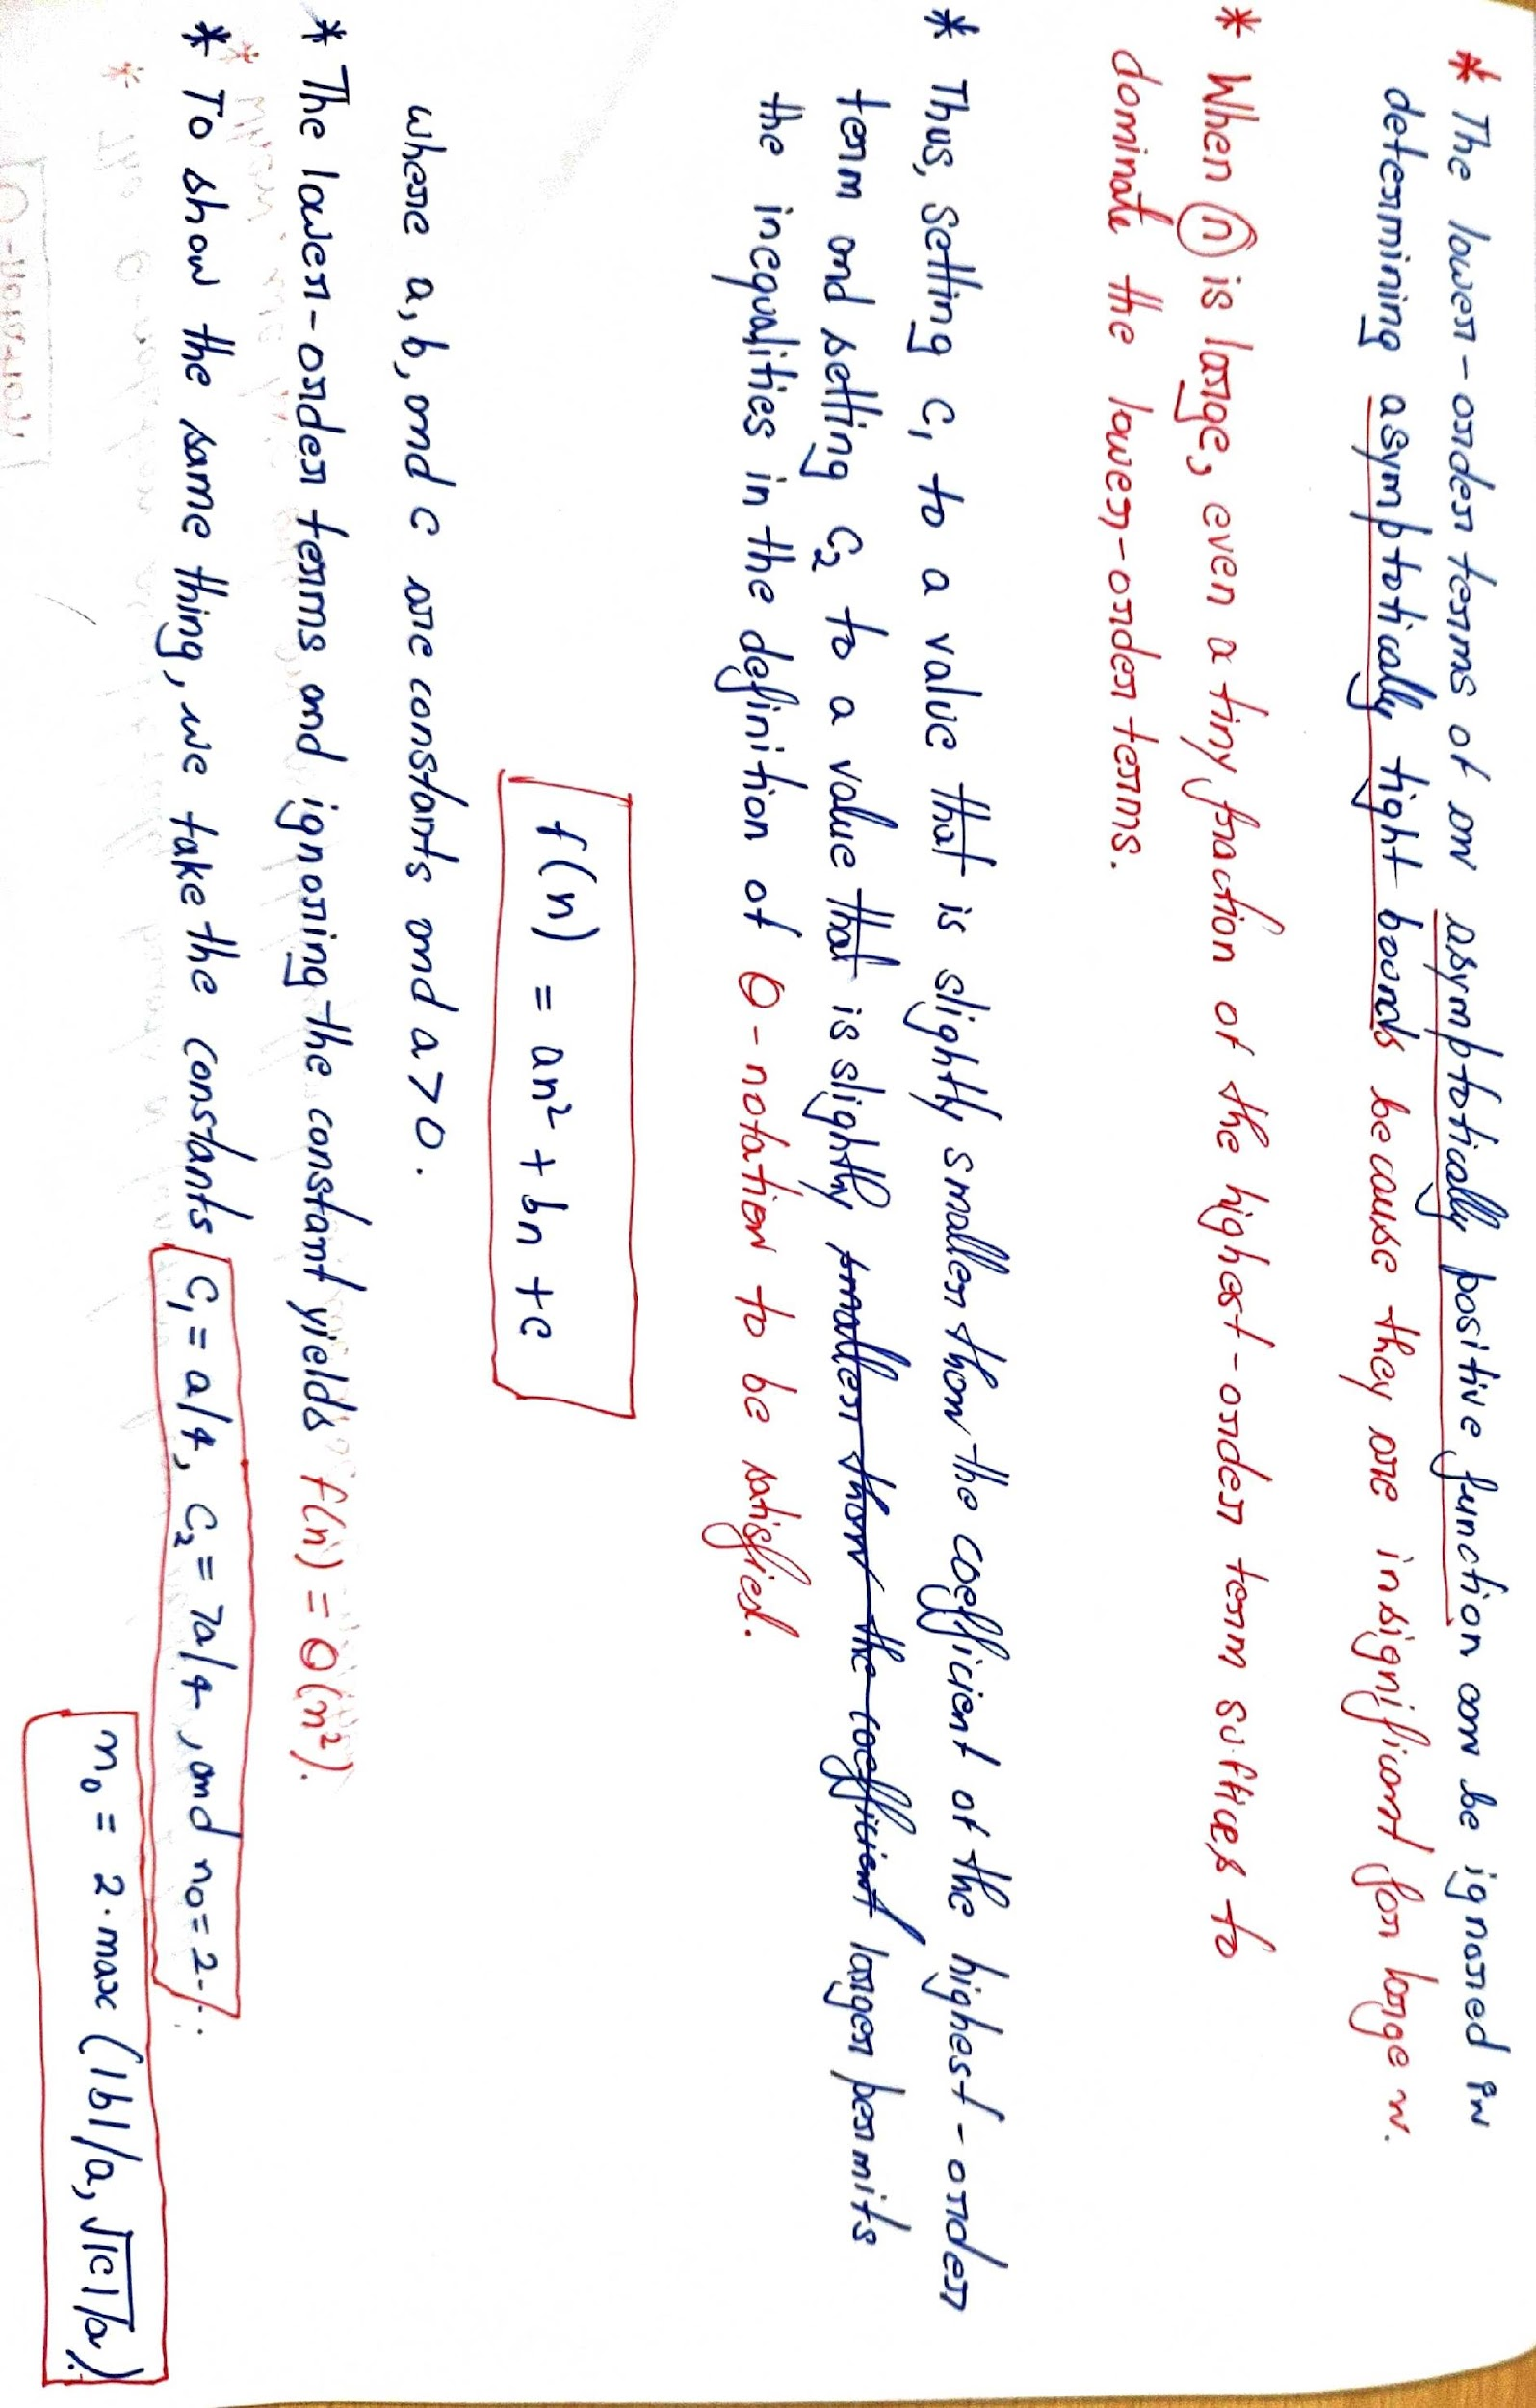 * The lower-order terms of an asymptotically positive function can be ignored in
determining asymptotically tight bounds because they are insignificant for large n.
* When n is large, even a tiny fraction of the highest-order term suffices to
dominate the lower-order terms.
* Thus, setting c₁ to a value that is slightly smaller than the coefficient of the highest-order
term and setting c₂ to a value that is slightly smaller than the coefficient larger permits
the inequalities in the definition of θ-notation to be satisfied.
f(n) = an² + bn + c
where a, b, and c are constants and a > 0.
* The lower-order terms and ignoring the constant yields f(n) = θ(n²).
* To show the same thing, we take the constants c₁ = a/4, c₂ = 7a/4, and n₀ = 2·.
n₀ = 2·max (|b|/a, √|c|/a).